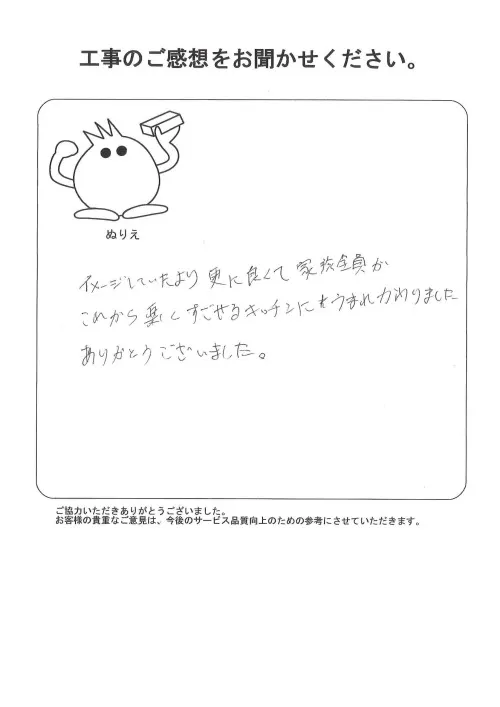 工事のご感想をお聞かせください。
ぬりえ
イメージしていたより更に良くて家族全員が
これから楽しくすごせるキッチンにうまれかわりました
ありがとうございました。
ご協力いただきありがとうございました。
お客様の貴重なご意見は、今後のサービス品質向上のための参考にさせていただきます。